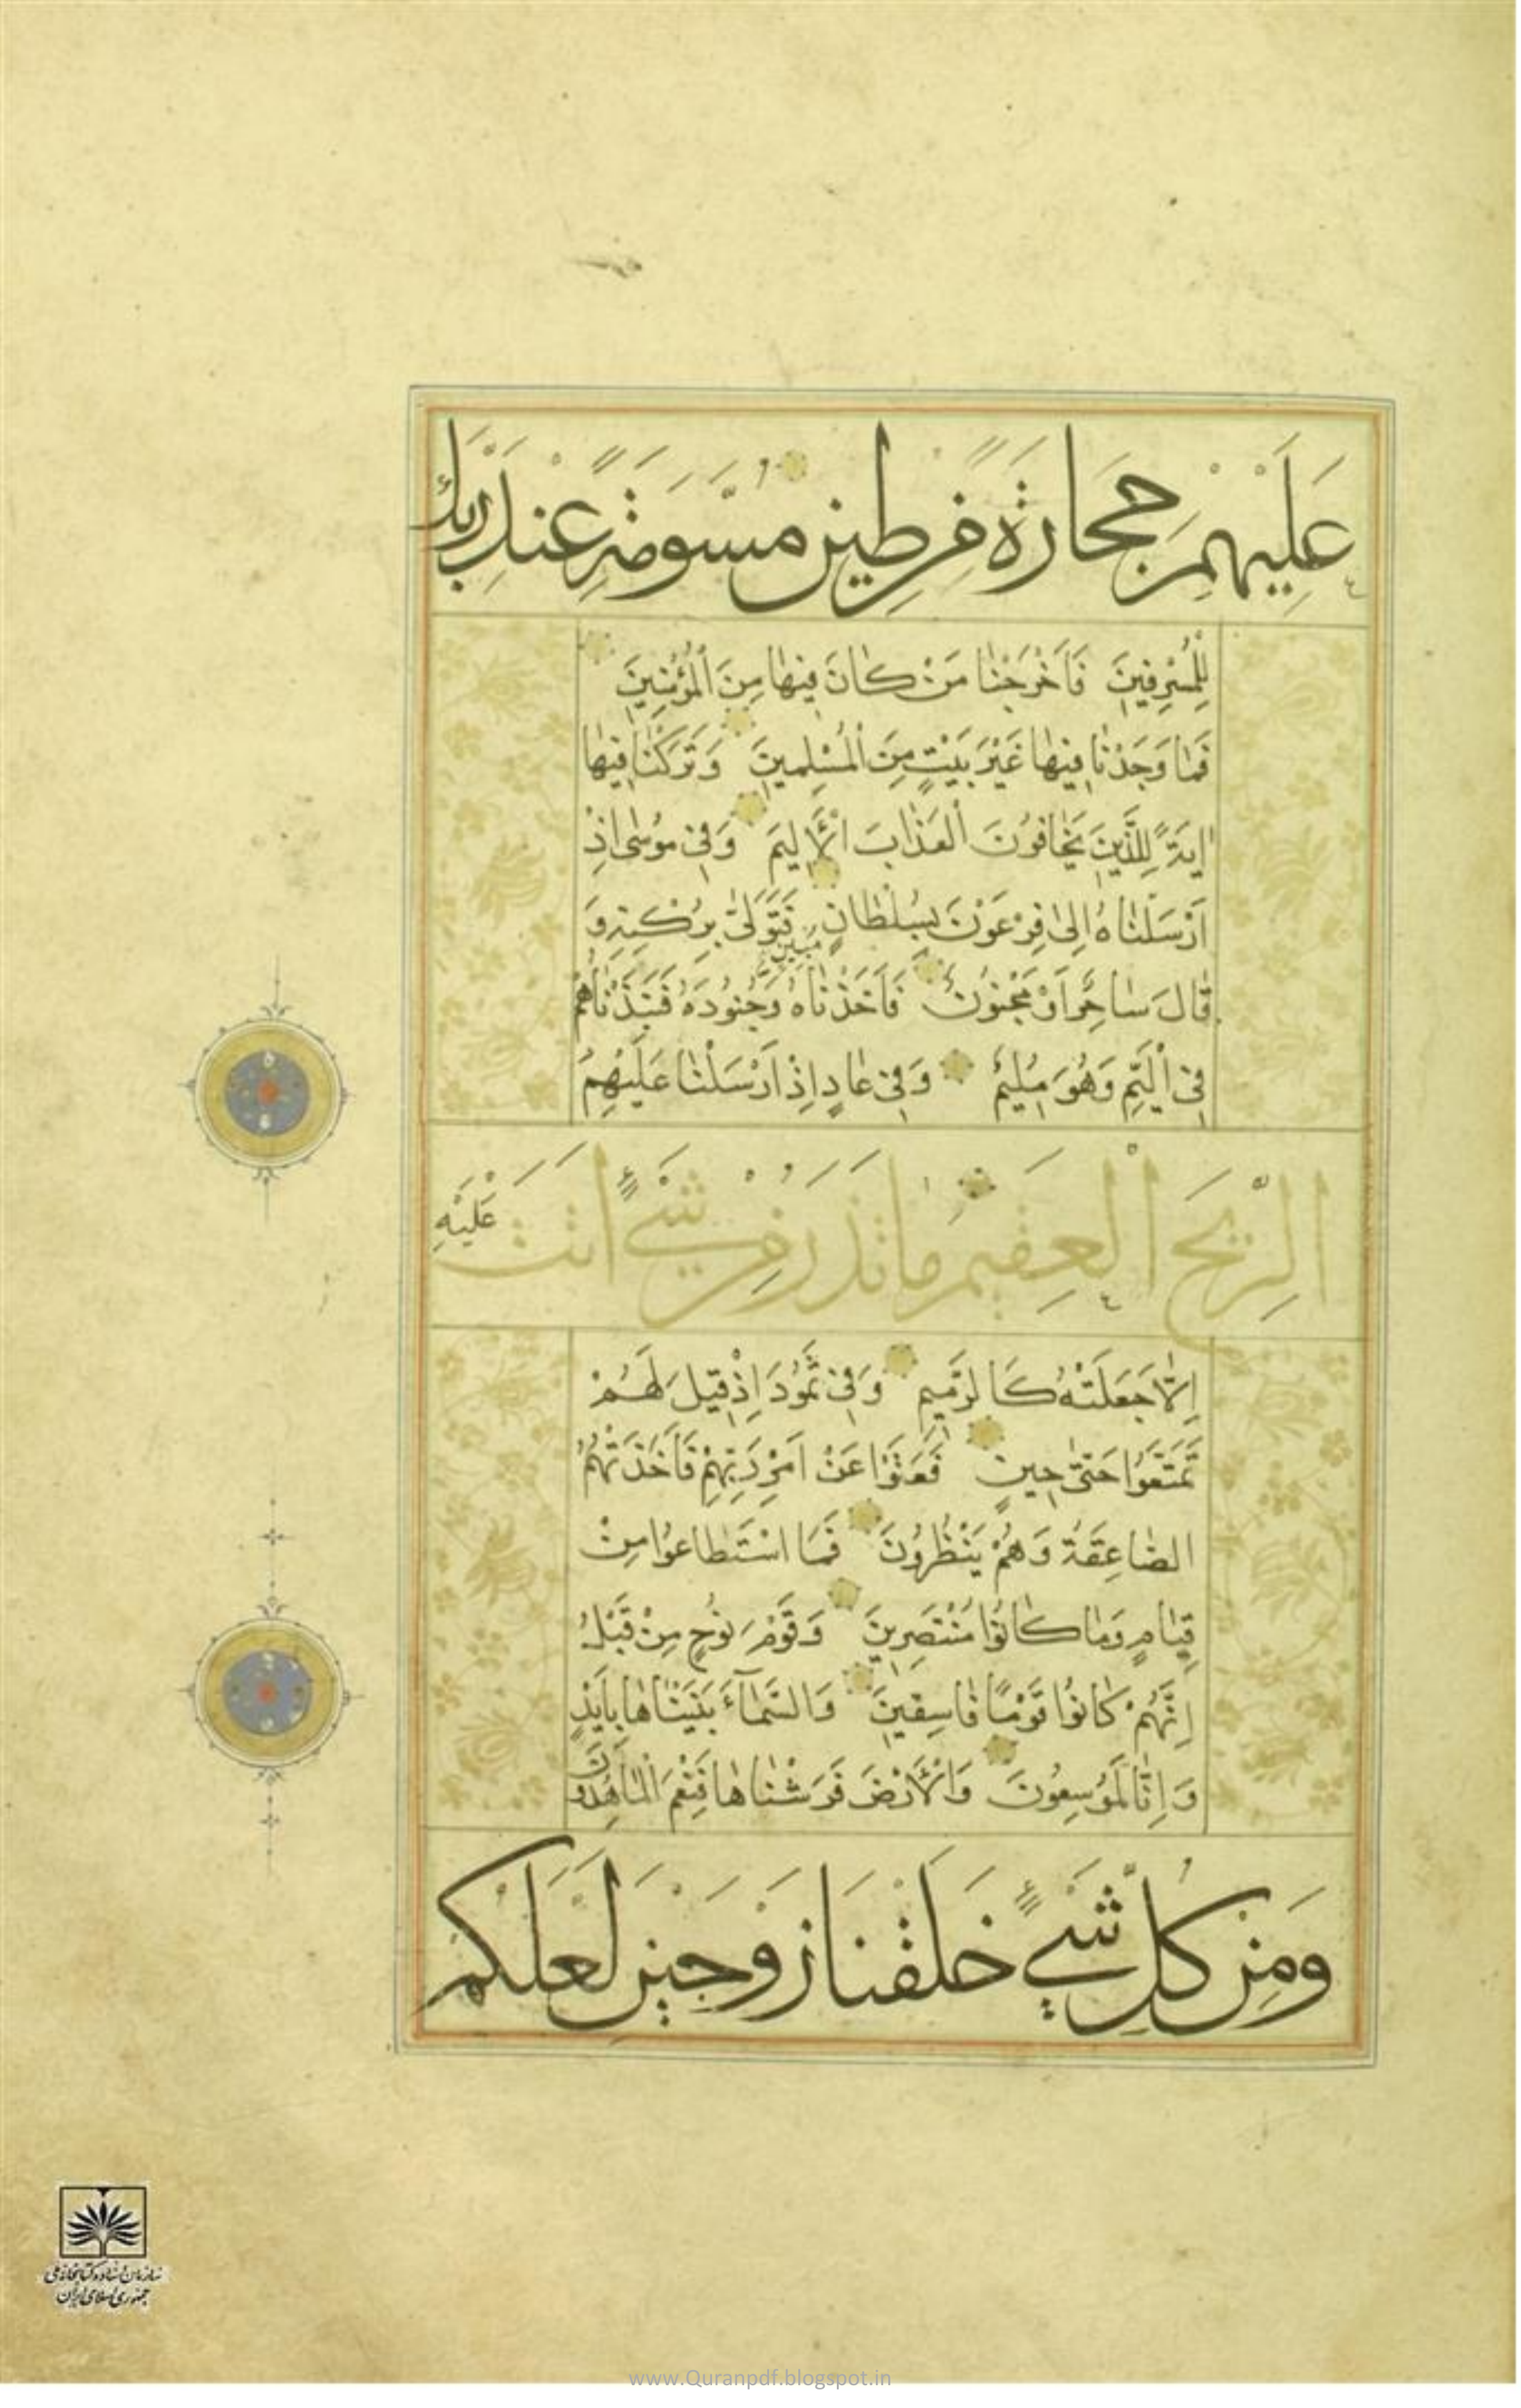 عَلَيْهِمْ حِجَارَةً مِنْ طِينٍ مُسَوَّمَةً عِنْدَ رَبِّكَ
لِلْمُسْرِفِينَ فَاَخْرَجْنَا مَنْ كَانَ فِيهَا مِنَ الْمُؤْمِنِينَ
فَمَا وَجَدْنَا فِيهَا غَيْرَ بَيْتٍ مِنَ الْمُسْلِمِينَ وَتَرَكْنَا فِيهَا
اٰيَةً لِلَّذِينَ يَخَافُونَ الْعَذَابَ الْاَلِيمَ وَفِى مُوسٰى اِذْ
اَرْسَلْنَاهُ اِلٰى فِرْعَوْنَ بِسُلْطَانٍ مُبِينٍ فَتَوَلّٰى بِرُكْنِهِ وَ
قَالَ سَاحِرٌ اَوْ مَجْنُونٌ فَاَخَذْنَاهُ وَجُنُودَهُ فَنَبَذْنَاهُمْ
فِى الْيَمِّ وَهُوَ مُلِيمٌ وَفِى عَادٍ اِذْ اَرْسَلْنَا عَلَيْهِمُ
الرِّيحَ الْعَقِيمَ مَا تَذَرُ مِنْ شَيْءٍ اَتَتْ عَلَيْهِ
اِلَّا جَعَلَتْهُ كَالرَّمِيمِ وَفِى ثَمُودَ اِذْ قِيلَ لَهُمْ
تَمَتَّعُوا حَتّٰى حِينٍ فَعَتَوْا عَنْ اَمْرِ رَبِّهِمْ فَاَخَذَتْهُمُ
الصَّاعِقَةُ وَهُمْ يَنْظُرُونَ فَمَا اسْتَطَاعُوا مِنْ
قِيَامٍ وَمَا كَانُوا مُنْتَصِرِينَ وَقَوْمَ نُوحٍ مِنْ قَبْلُ
اِنَّهُمْ كَانُوا قَوْمًا فَاسِقِينَ وَالسَّمَآءَ بَنَيْنَاهَا بِاَيْدٍ
وَاِنَّا لَمُوسِعُونَ وَالْاَرْضَ فَرَشْنَاهَا فَنِعْمَ الْمَاهِدُونَ
وَمِنْ كُلِّ شَيْءٍ خَلَقْنَا زَوْجَيْنِ لَعَلَّكُمْ
سازمان اسناد و کتابخانه ملی
جمهوری اسلامی ایران
www.Quranpdf.blogspot.in